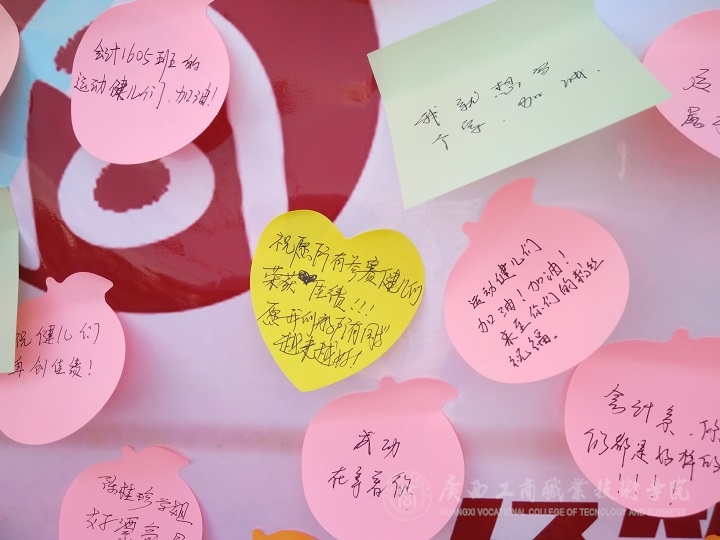 会计1605班的
运动健儿们,加油!
我就想写
个字.加油.
祝愿所有参赛健儿们
荣获 佳绩!!!
越来越好!
运动健儿们
加油!加油!
来至你们的粉丝
祝福。
祝健儿们
再创佳绩!
成功
在等着你
会计系,你
们都是好样的
!!!
陈桂珍学姐
广西工商职业技术学院
GUANGXI VOCATIONAL COLLEGE OF TECNOLOGY AND BUSINESS